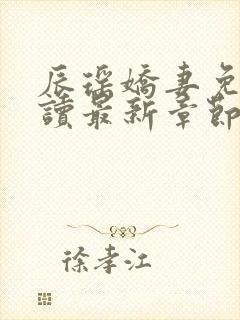 辰瑶嬌妻免
讀最新章節
徐孝江